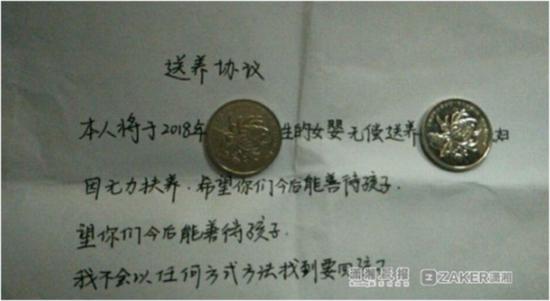 送养协议
本人将于2018年 生的女婴无偿送养 妇
因无力扶养.希望你们今后能善待孩子.
望你们今后能善待孩子.
我不会以任何方式方法找到要回孩子
潇湘晨报 ZAKER潇湘